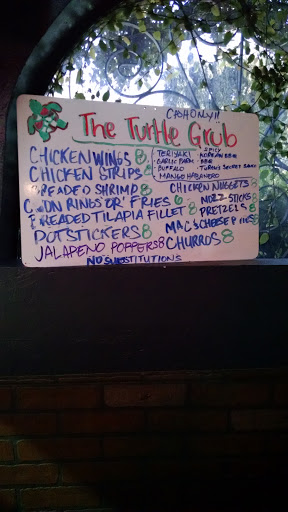 CASH ONLY!!
The Turtle Grub
CHICKEN WINGS 8
TERIYAKI
GARLIC PARM
BUFFALO
MANGO HABANERO
SPICY KOREAN BBQ
BBQ
TURTLE SECRET SAUCE
CHICKEN STRIPS 8
BREADED SHRIMP 8
ONION RINGS "OR" FRIES 8
BREADED TILAPIA FILLET 8
POTSTICKERS 8
JALAPENO POPPERS 8
CHICKEN NUGGETS 8
MOZZ STICKS 8
PRETZELS 8
MAC & CHEESE BITES 8
CHURROS 8
NO SUBSTITUTIONS